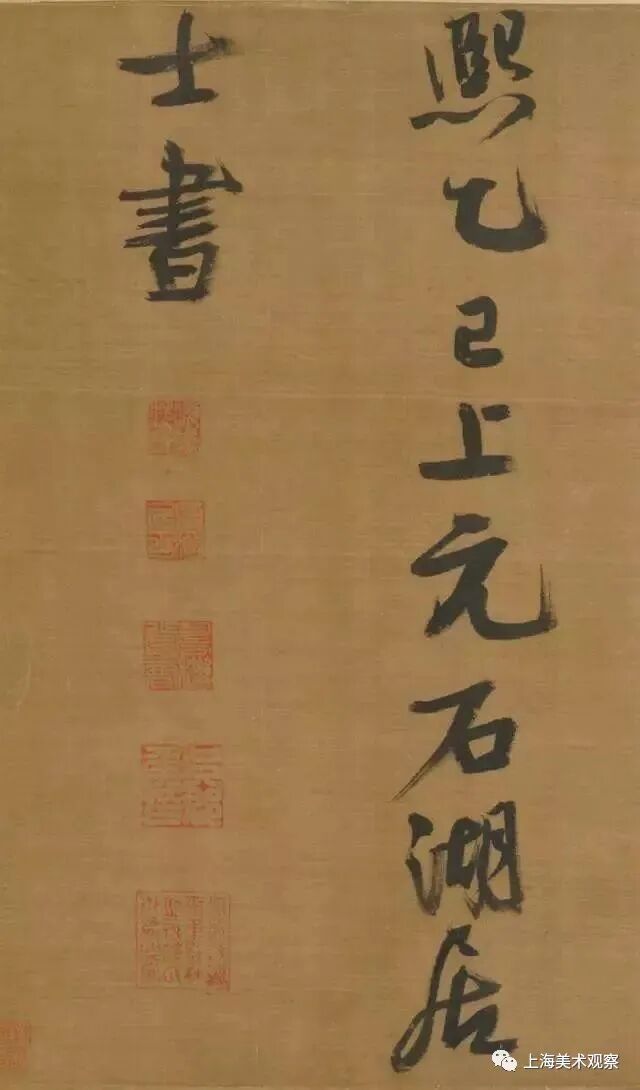 熙乙巳上元石湖居
士書
上海美术观察